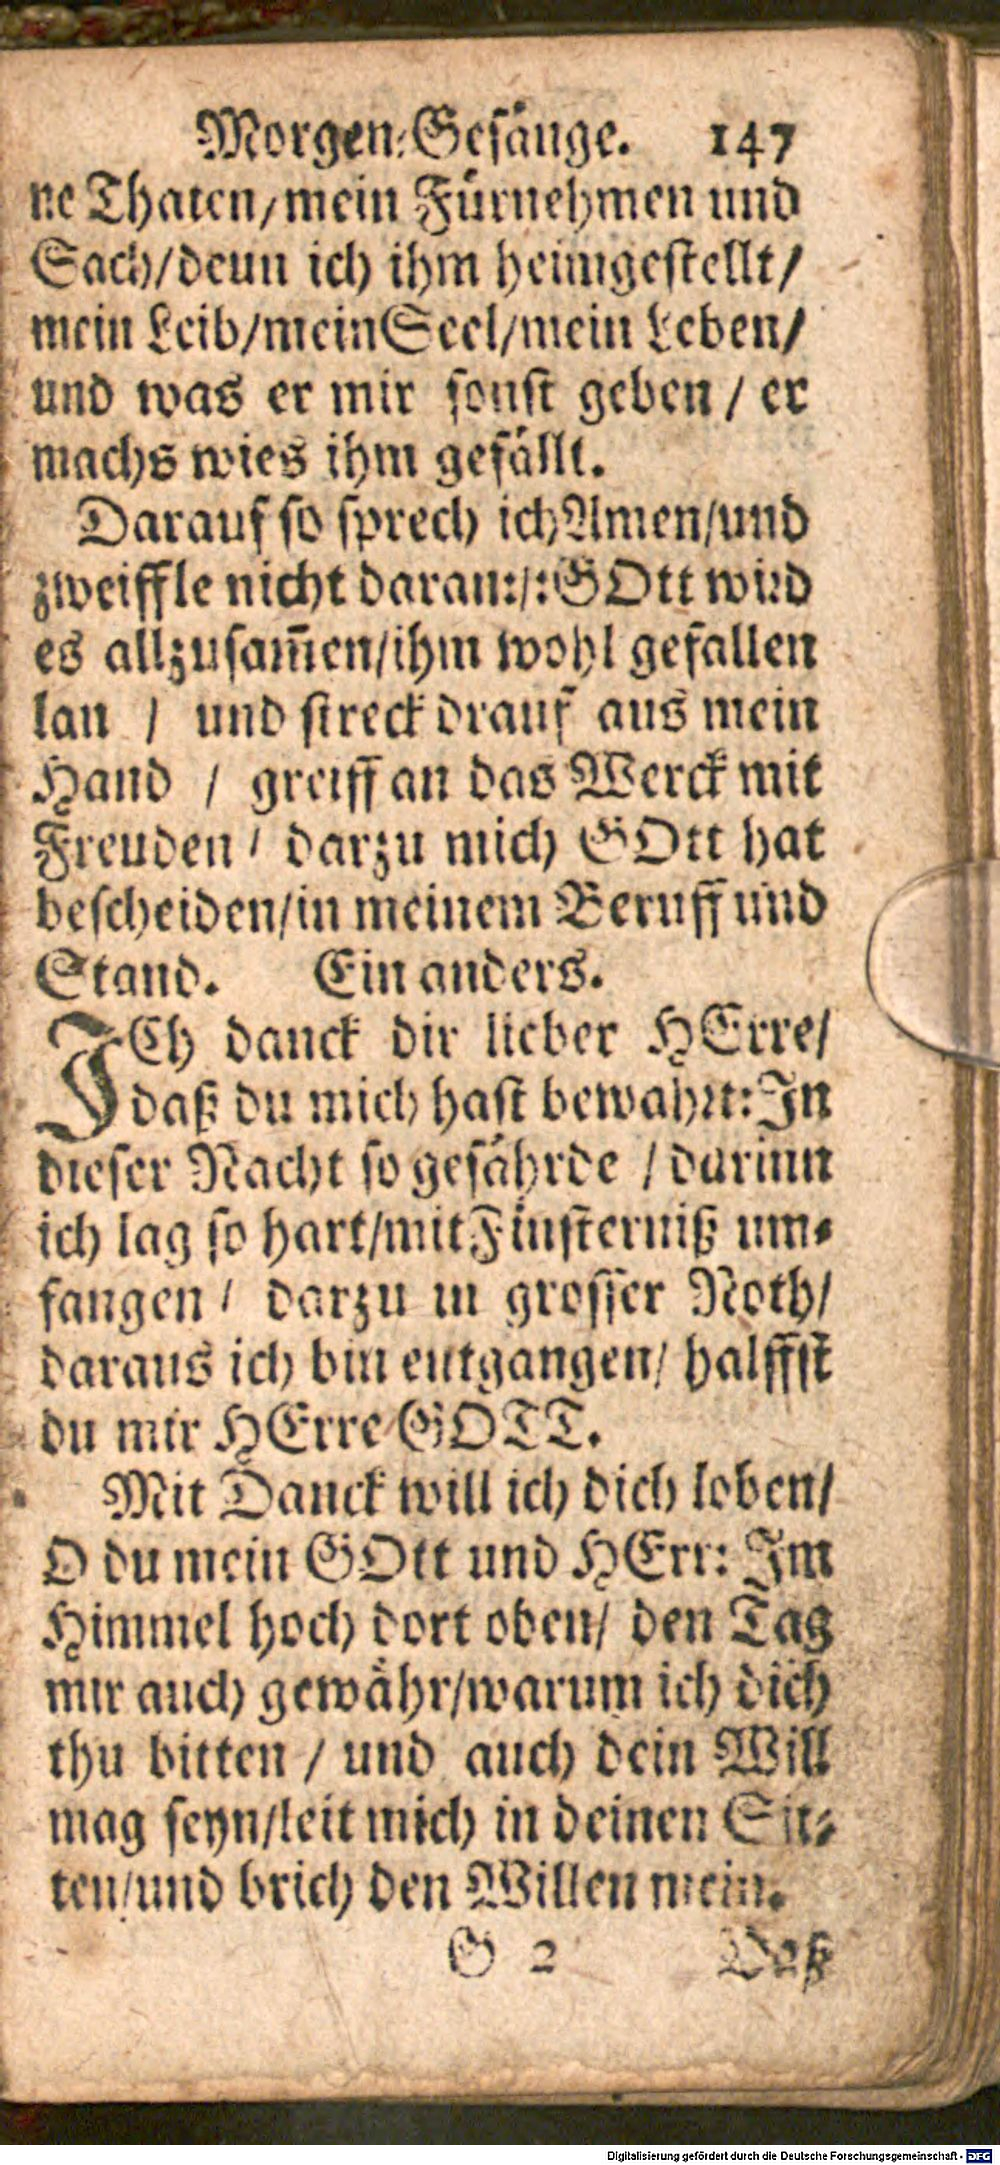 Morgen-Gesänge. 147
ne Thaten/mein Fürnehmen und
Sach/denn ich ihm heimgestellt/
mein Leib/mein Seel/mein Leben/
und was er mir sonst geben / er
machs wies ihm gefällt.
Darauf so sprech ich Amen/und
zweiffle nicht daran:/:GOtt wird
es allzusam̃en/ihm wohl gefallen
lan / und streck drauf aus mein
Hand / greiff an das Werck mit
Freuden / darzu mich GOtt hat
bescheiden/in meinem Beruff und
Stand. Ein anders.
ICh danck dir lieber HErre/
daß du mich hast bewahrt: In
dieser Nacht so gefährde / darinn
ich lag so hart/mit Finsterniß um-
fangen / darzu in grosser Noth/
daraus ich bin entgangen/ halffst
du mir HErre GOTT.
Mit Danck will ich dich loben/
O du mein GOtt und HErr: Im
Himmel hoch dort oben/ den Tag
mir auch gewähr/warum ich dich
thu bitten / und auch dein Will
mag seyn/leit mich in deinen Sit-
ten/und brich den Willen mein.
G 2 Daß
Digitalisierung gefördert durch die Deutsche Forschungsgemeinschaft - DFG